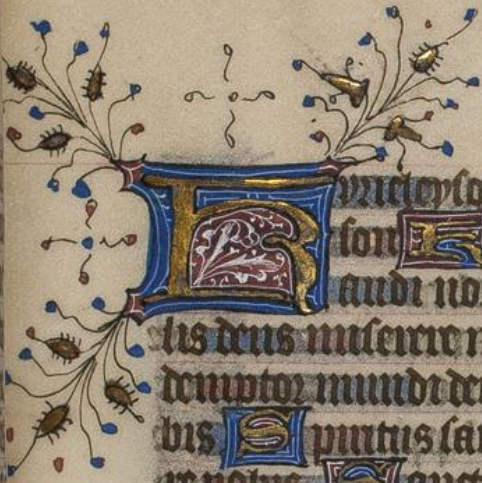 Kyrieleyso
son K
audi no
lis deus miserere n
demptor mundi de
bis S piritus sa
re nobis S anct